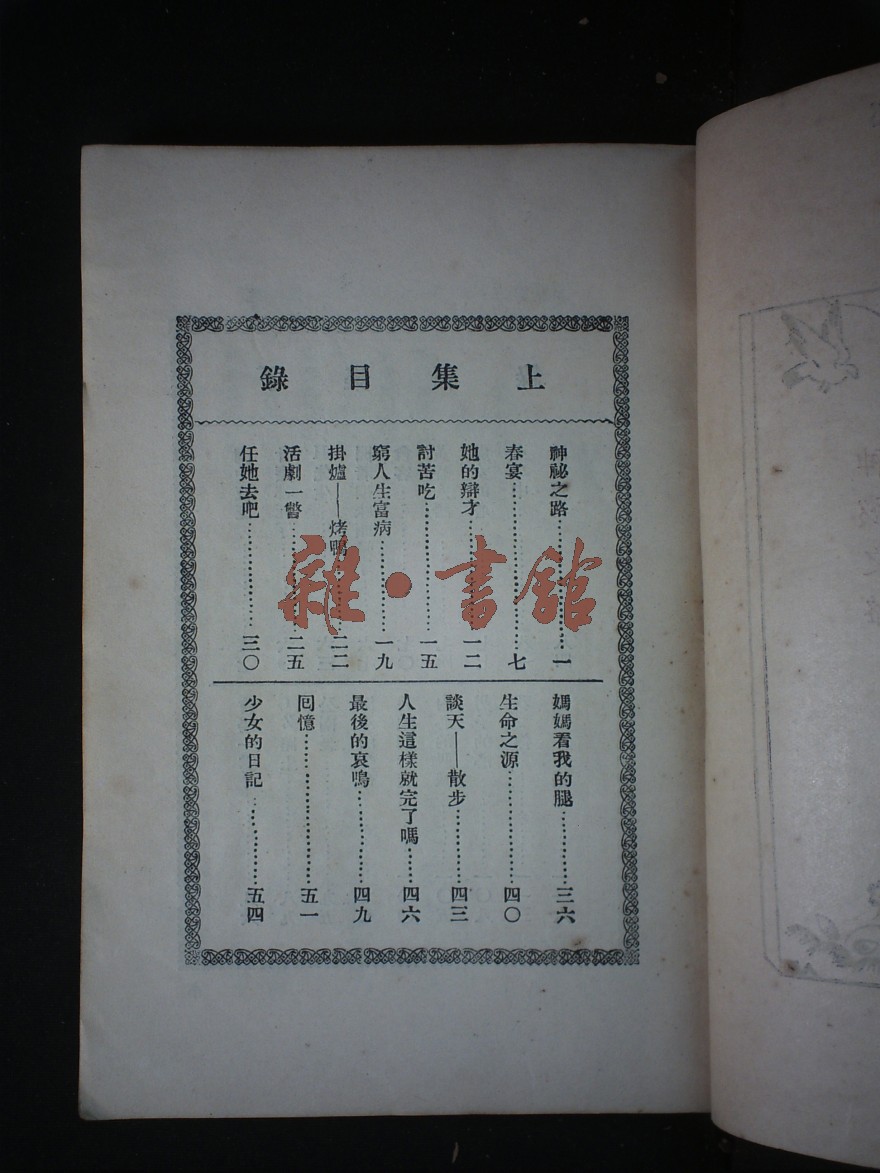 上集目錄
神祕之路⋯⋯⋯⋯一
春宴⋯⋯⋯⋯七
她的辯才⋯⋯⋯⋯一二
討苦吃⋯⋯⋯⋯一五
窮人生富病⋯⋯⋯⋯一九
掛爐——烤鴨⋯⋯⋯⋯二二
活劇一瞥⋯⋯⋯⋯二五
任她去吧⋯⋯⋯⋯三〇
媽媽看我的腿⋯⋯⋯⋯三六
生命之源⋯⋯⋯⋯四〇
談天——散步⋯⋯⋯⋯四三
人生這樣就完了嗎⋯⋯四六
最後的哀鳴⋯⋯⋯⋯四九
回憶⋯⋯⋯⋯五一
少女的日記⋯⋯⋯⋯五四
雜·書館